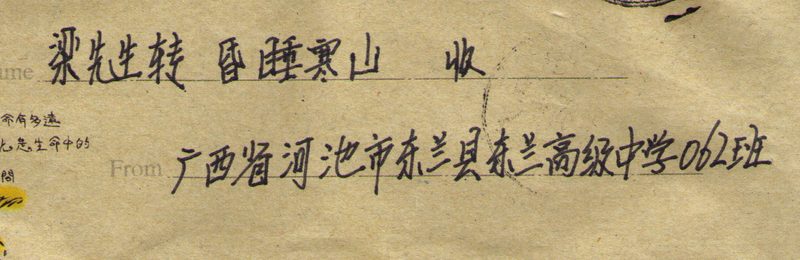 梁先生转 昏睡寒山 收
命有多遠
生命中的
問
From 广西省河池市东兰县东兰高级中学062班